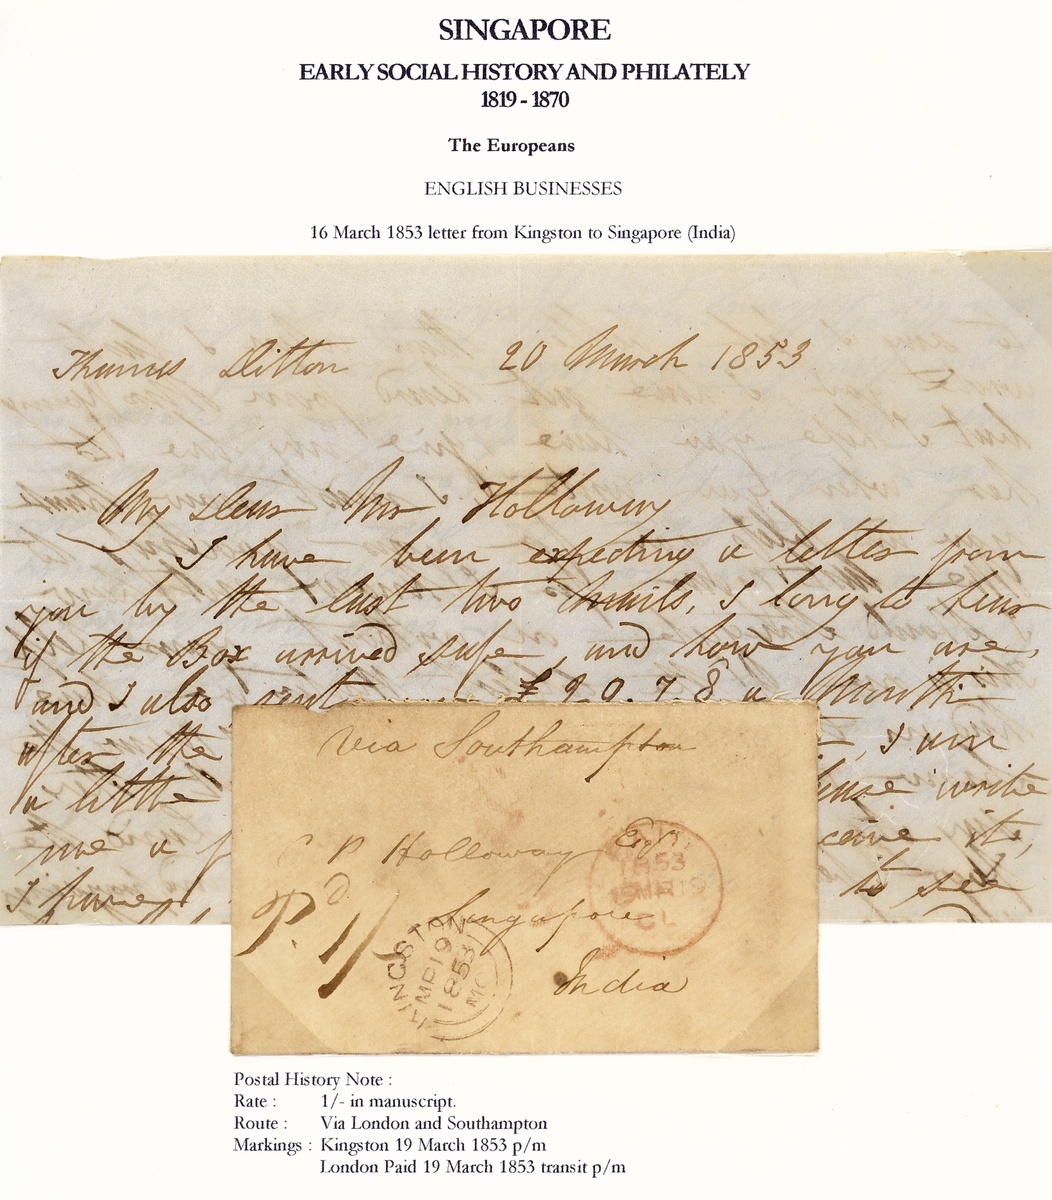 SINGAPORE
EARLY SOCIAL HISTORY AND PHILATELY
1819 - 1870
The Europeans
ENGLISH BUSINESSES
16 March 1853 letter from Kingston to Singapore (India)
Thames Ditton 20 March 1853
My Dear Mr Holloway
I have been expecting a letter from
you by the last two Mails, I long to hear
if the Box arrived safe, and how you are,
and I also sent £ 20.7.8 a Month
after the I am
a little write
me a it,
I have to see
Via Southampton
C P Holloway Esqr.
Singapore
India
Pd 1/-
1853
MR 19
KINGSTON
MR 19
1853
Postal History Note :
Rate : 1/- in manuscript.
Route : Via London and Southampton
Markings : Kingston 19 March 1853 p/m
London Paid 19 March 1853 transit p/m